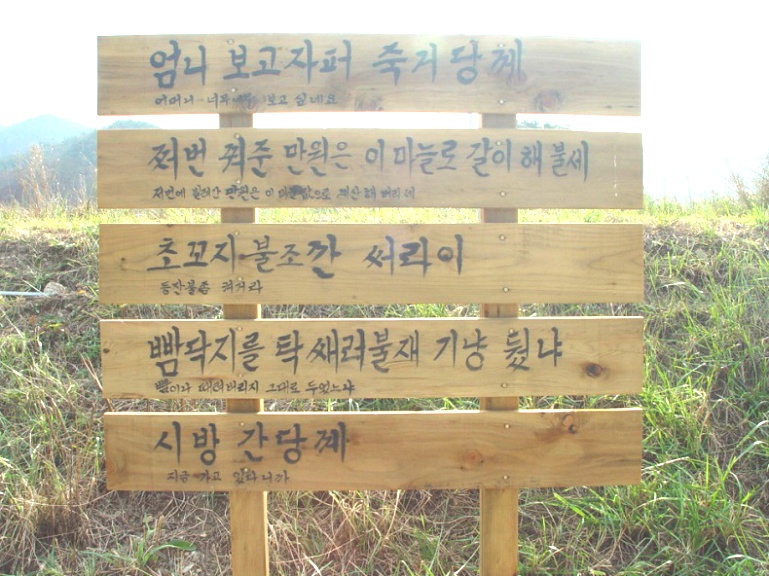 엄니 보고자퍼 죽거당께
어머니 너무너무 보고 싶네요
쩌번 꿔준 만원은 이 마늘로 갈이 해 불세
저번에 빌려간 만원은 이 마늘값으로 계산해 버리세
초꼬지불조깐 써라이
등잔불좀 켜거라
뺌닥지를 탁 쌔러불재 기냥 뒀냐
뺨이나 때려버리지 그대로 두었느냐
시방 간당께
지금 가고 있다니까